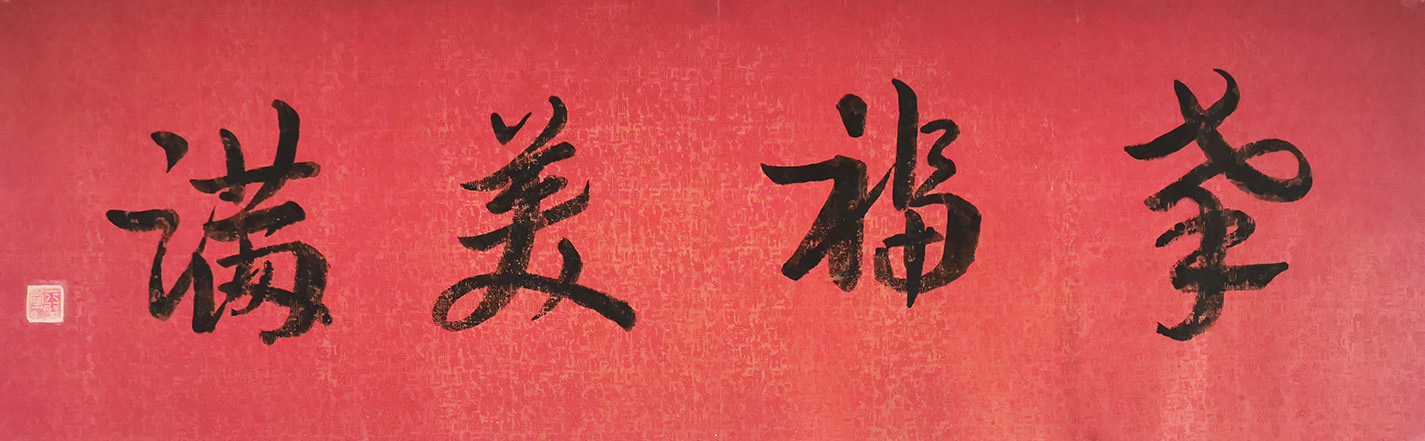 幸福美满